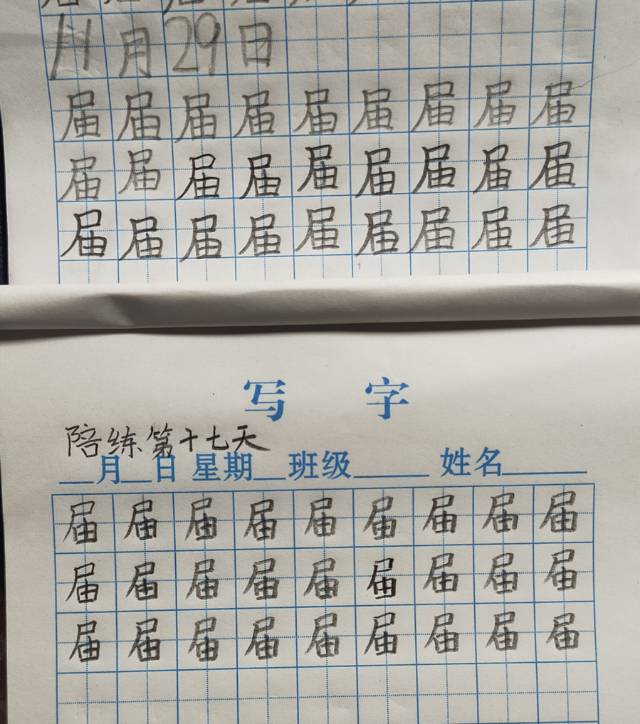 11月29日
届届届届届届届届届
届届届届届届届届届
届届届届届届届届届
写 字
陪练第十七天
__月__日 星期__班级_____ 姓名_____
届届届届届届届届届
届届届届届届届届届
届届届届届届届届届